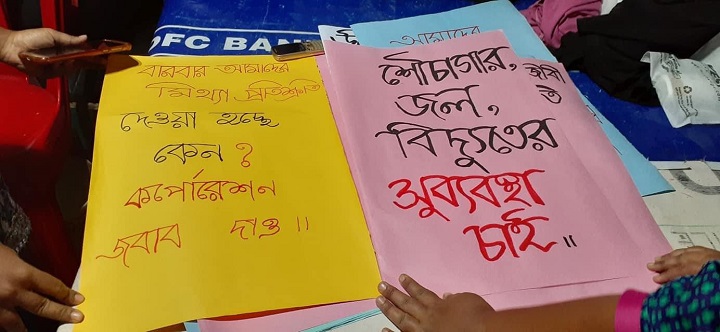 DFC BANK
বারবার আমাদের
মিথ্যা প্রতিশ্রুতি
দেওয়া হচ্ছে
কেন?
কর্পোরেশন
জবাব দাও॥
আমাদের
শৌচাগার,
জল,
বিদ্যুতের
সুব্যবস্থা
চাই॥